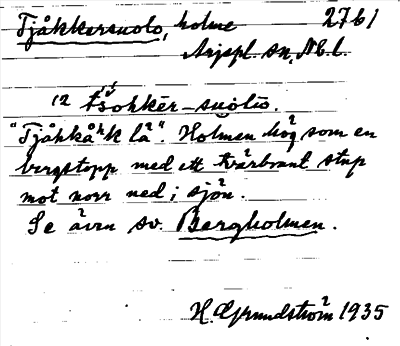 Tjåkkersuolo, holme 2761
Arjepl. sn, Nb l.
12 tšohkēr-suolō.
"Tjåhkåk'k lå". Holmen hög som en
bergstopp med ett tvärbrant stup
mot norr ned i sjön.
Se även sv. Bergholmen.
H. Grundström 1935